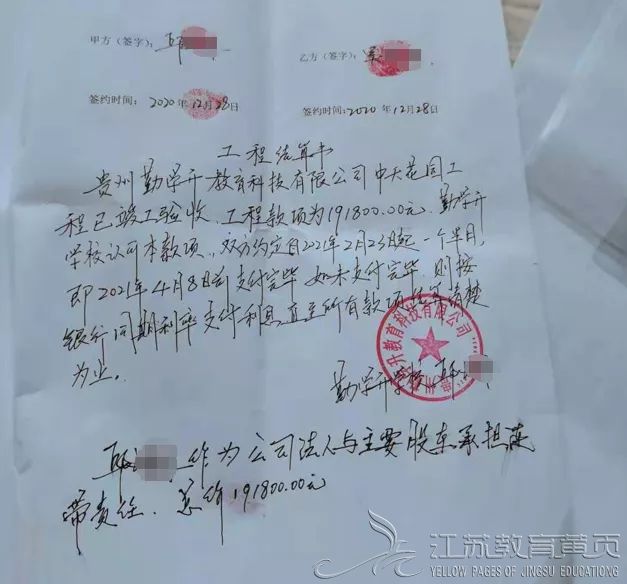 甲方（签字）：
乙方（签字）：
签约时间：2020年12月28日
签约时间：2020年12月28日
工程结算书
贵州勤学升教育科技有限公司中大花园工
程已竣工验收，工程款项为191800.00元，勤学升
学校认可本款项，双方约定自2021年2月23日起一个半月，
即2021年4月8日前支付完毕，如未支付完毕，则按
银行同期利率支付利息直至所有款项结算清楚
为止。
升教育科技有限公司
勤学升学校
作为公司法人与主要股东承担连
带责任。总价191800.00元
江苏教育黄页
YELLOW PAGES OF JINGSU EDUCATIONG